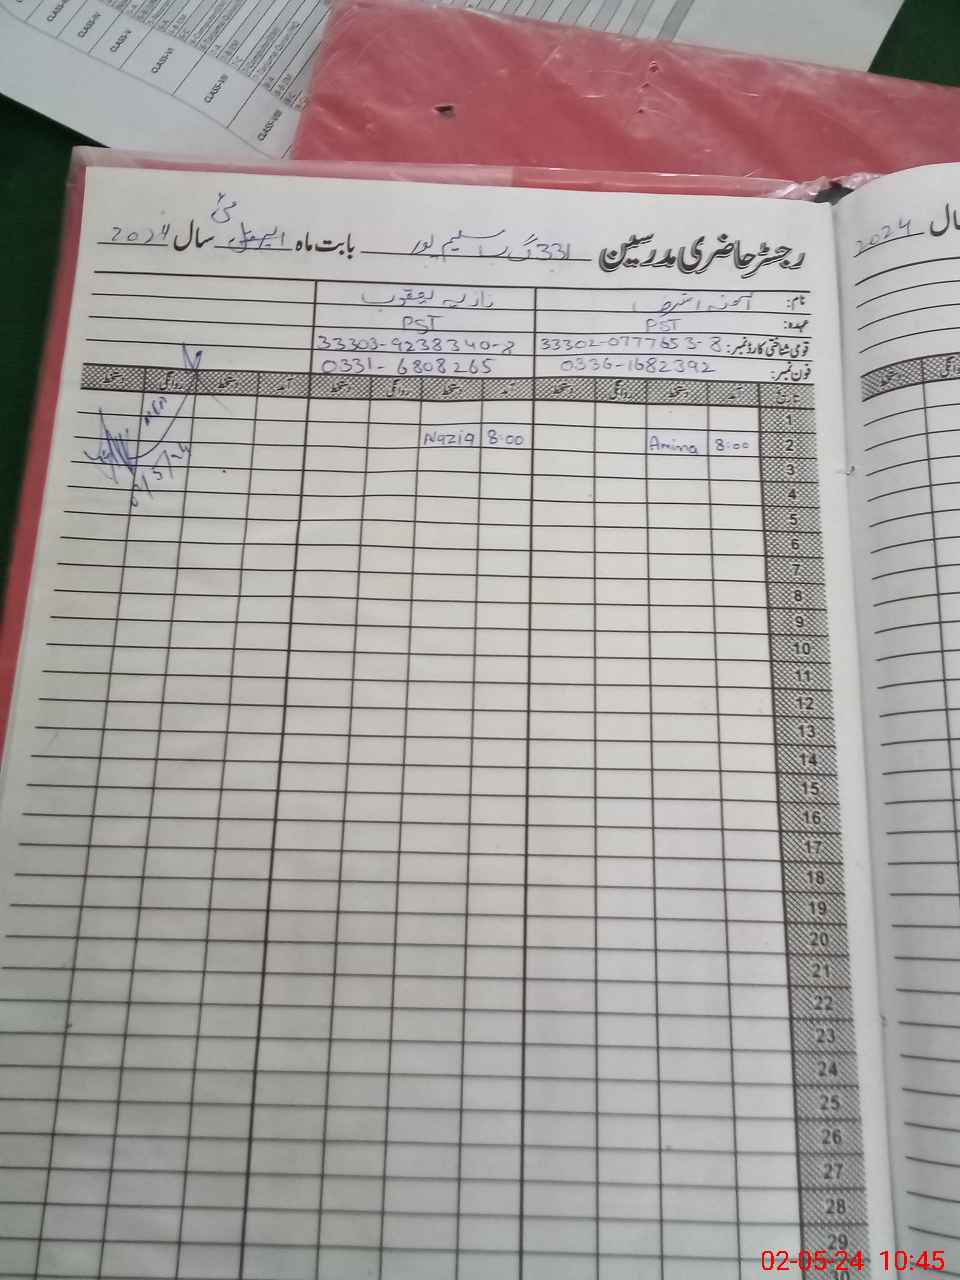 CLASS-IV
CLASS-V
CLASS-VI
CLASS-VII
CLASS-VIII
رجسٹر حاضری مدرسین 331 گ ب سلیم پور بابت ماہ اپریل مئی سال 2024
سال 2024
نام: آمنہ نازیہ یعقوب
عہدہ: PST PST
قومی شناختی کارڈ نمبر: 33302-0777653-8 33303-9238340-8
فون نمبر: 0336-1682392 0331-6808265
تاریخ آمد دستخط روانگی دستخط آمد دستخط روانگی دستخط آمد دستخط روانگی دستخط
روانگی دستخط
1
2 8:00 Amina 8:00 Nazia
3
4
5
6
7
8
9
10
11
12
13
14
15
16
17
18
19
20
21
22
23
24
25
26
27
28
29
02-05-24 10:45